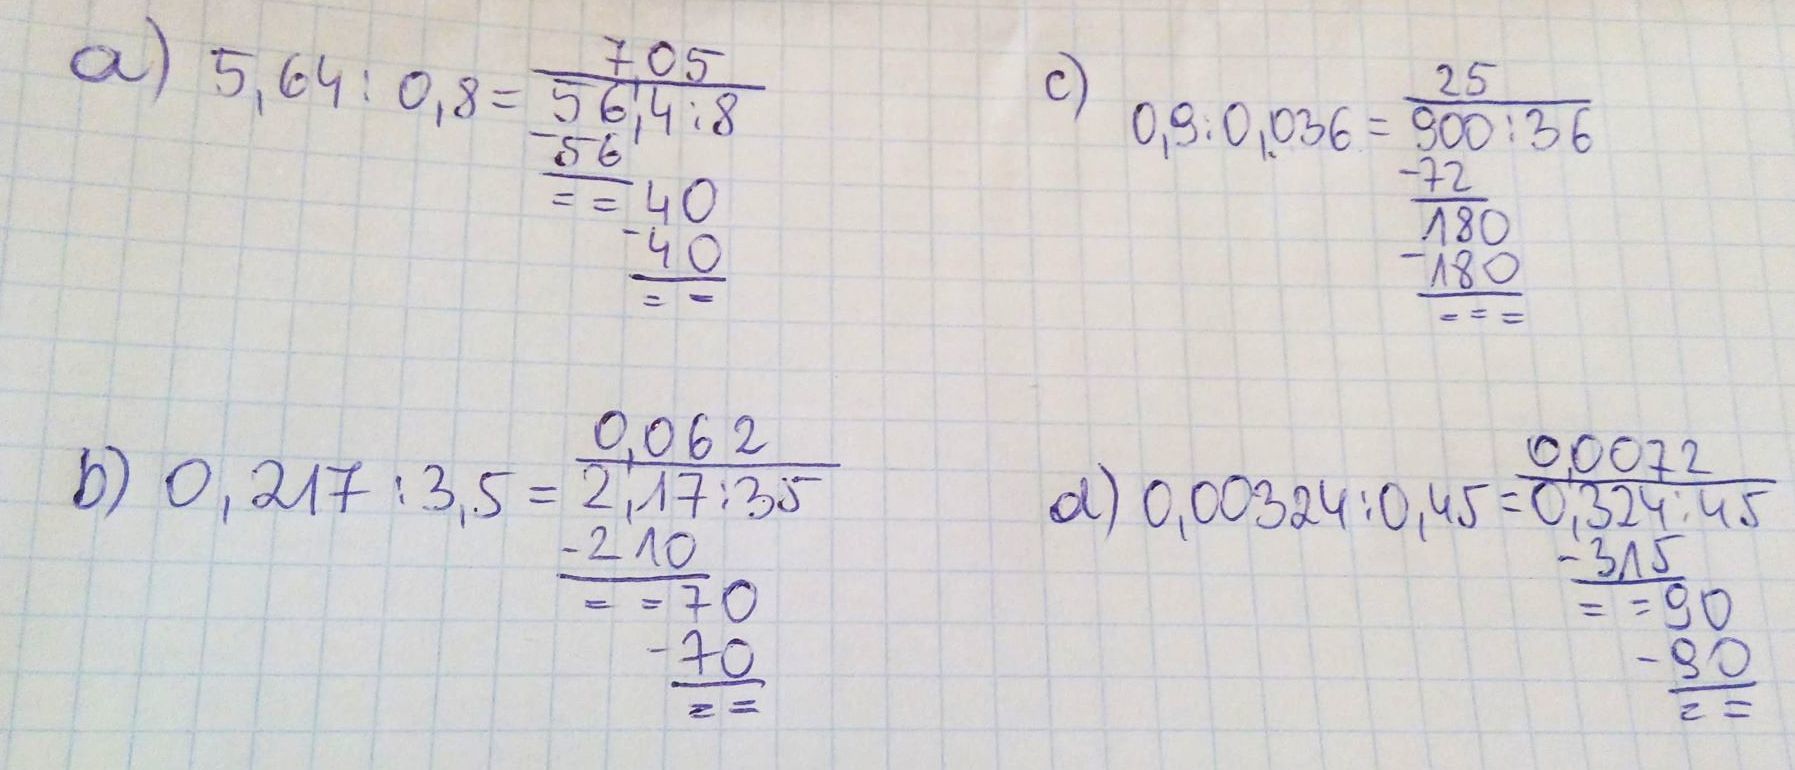 a) 5,64 : 0,8 =
7,05
56,4 : 8
-56
= = 40
-40
= =
c) 0,9 : 0,036 =
25
900 : 36
-72
180
-180
= = =
b) 0,217 : 3,5 =
0,062
2,17 : 35
-210
= = 70
-70
= =
d) 0,00324 : 0,45 =
0,0072
0,324 : 45
-315
= = 90
-90
= =